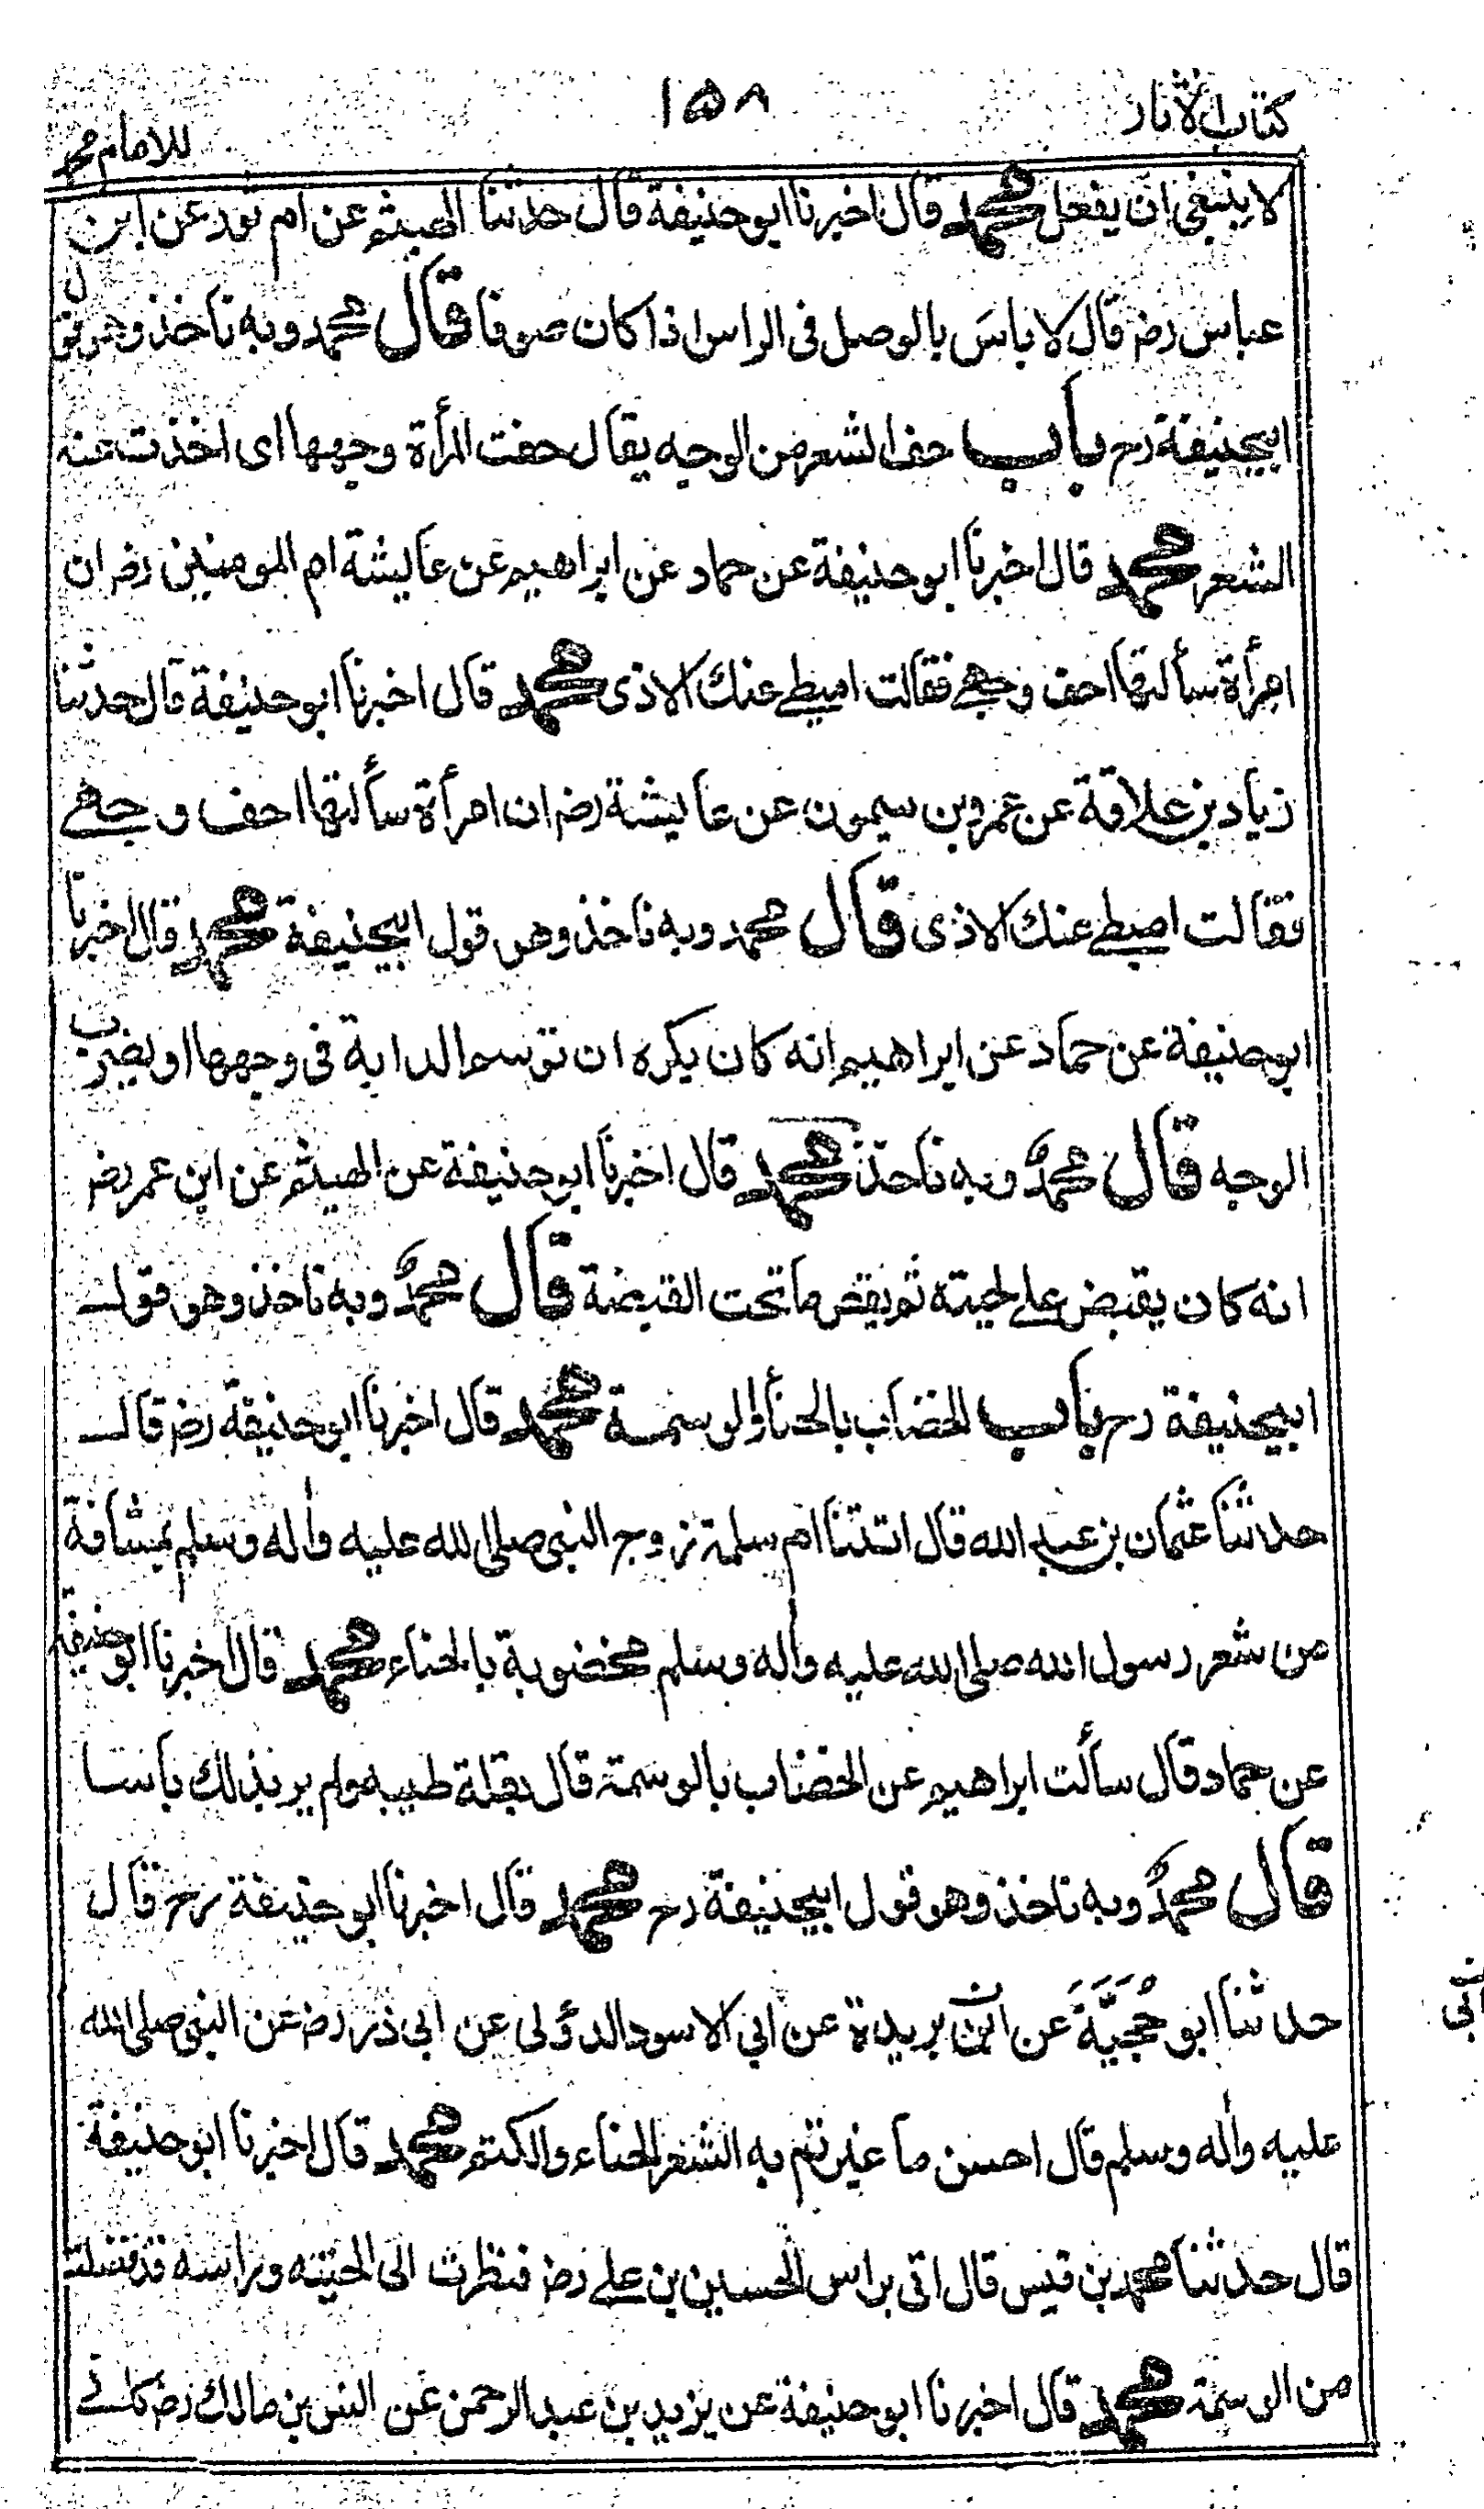 كتاب الاثار
١٥٨
للامام محمد
لا ينبغى ان يفعل محمد قال اخبرنا ابو حنيفة قال حدثنا الهيثم عن ام ثور عن ابن
عباس رضـ قال لا باسَ بالوصل فى الراس اذا كان صوفا قال محمد وبه ناخذ وهو قول
ابيحنيفة رحـ باب حف الشعر من الوجه يقال حفت المرأة وجهها اى اخذت عنه
الشعر محمد قال اخبرنا ابو حنيفة عن حماد عن ابراهيم عن عايشة ام المومنين رضـ ان
امرأة سألتها احف وجهے فقالت اميطے عنك الاذى محمد قال اخبرنا ابو حنيفة قال حدثنا
زياد بن علاقة عن عمرو بن ميمون عن عايشة رضـ ان امرأة سألتها احف وجهے
فقالت اميطے عنك الاذى قال محمد وبه ناخذ وهو قول ابيحنيفة محمد قال اخبرنا
ابو حنيفة عن حماد عن ابراهيم انه كان يكره ان توسم الدابة فى وجهها او يضرب
الوجه قال محمدؒ وبه ناخذ محمد قال اخبرنا ابو حنيفة عن الهيثم عن ابن عمر رضـ
انه كان يقبض علے لحيته ثم يقص ما تحت القبضة قال محمدؒ وبه ناخذ وهو قول
ابيحنيفة رحـ باب الخضاب بالحنأ والوسمة محمد قال اخبرنا ابو حنيفة رضـ قال
حدثنا عثمان بن عبد الله قال اتتنا ام سلمة زوج النبى صلى الله عليه واٰله وسلم بمشاقة
من شعر رسول الله صلى الله عليه واٰله وسلم مخضوبة بالحناء محمد قال اخبرنا ابو حنيفة
عن حماد قال سألت ابراهيم عن الخضاب بالوسمة قال بقلة طيبه ولم ير بذلك بأسا
قال محمدؒ وبه ناخذ وهو قول ابيحنيفة رحـ محمد قال اخبرنا ابو حنيفة رحـ قال
حدثنا ابو حُجَيَّةَ عَن ابن بريدة عن ابى الاسود الدؤلى عن ابى ذر رضـ عن النبى صلى الله
ابى
عليه واٰله وسلم قال احسن ما غيرتم به الشعر الحناء والكتم محمد قال اخبرنا ابو حنيفة
قال حدثنا محمد بن قيس قال اتى براس الحسين بن علے رضـ فنظرت الى لحيته وراسه قد نصلت
من الوسمة محمد قال اخبرنا ابو حنيفة عن يزيد بن عبد الرحمن عن انس بن مالك رضـ كانے